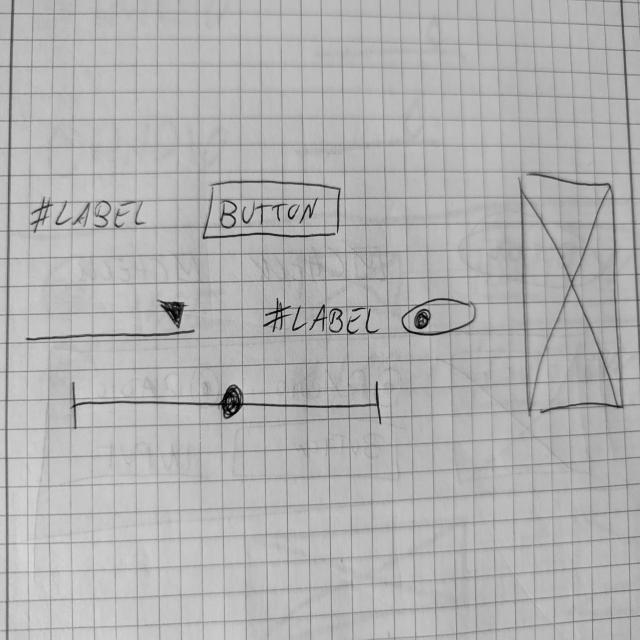 #LABEL BUTTON
#LABEL